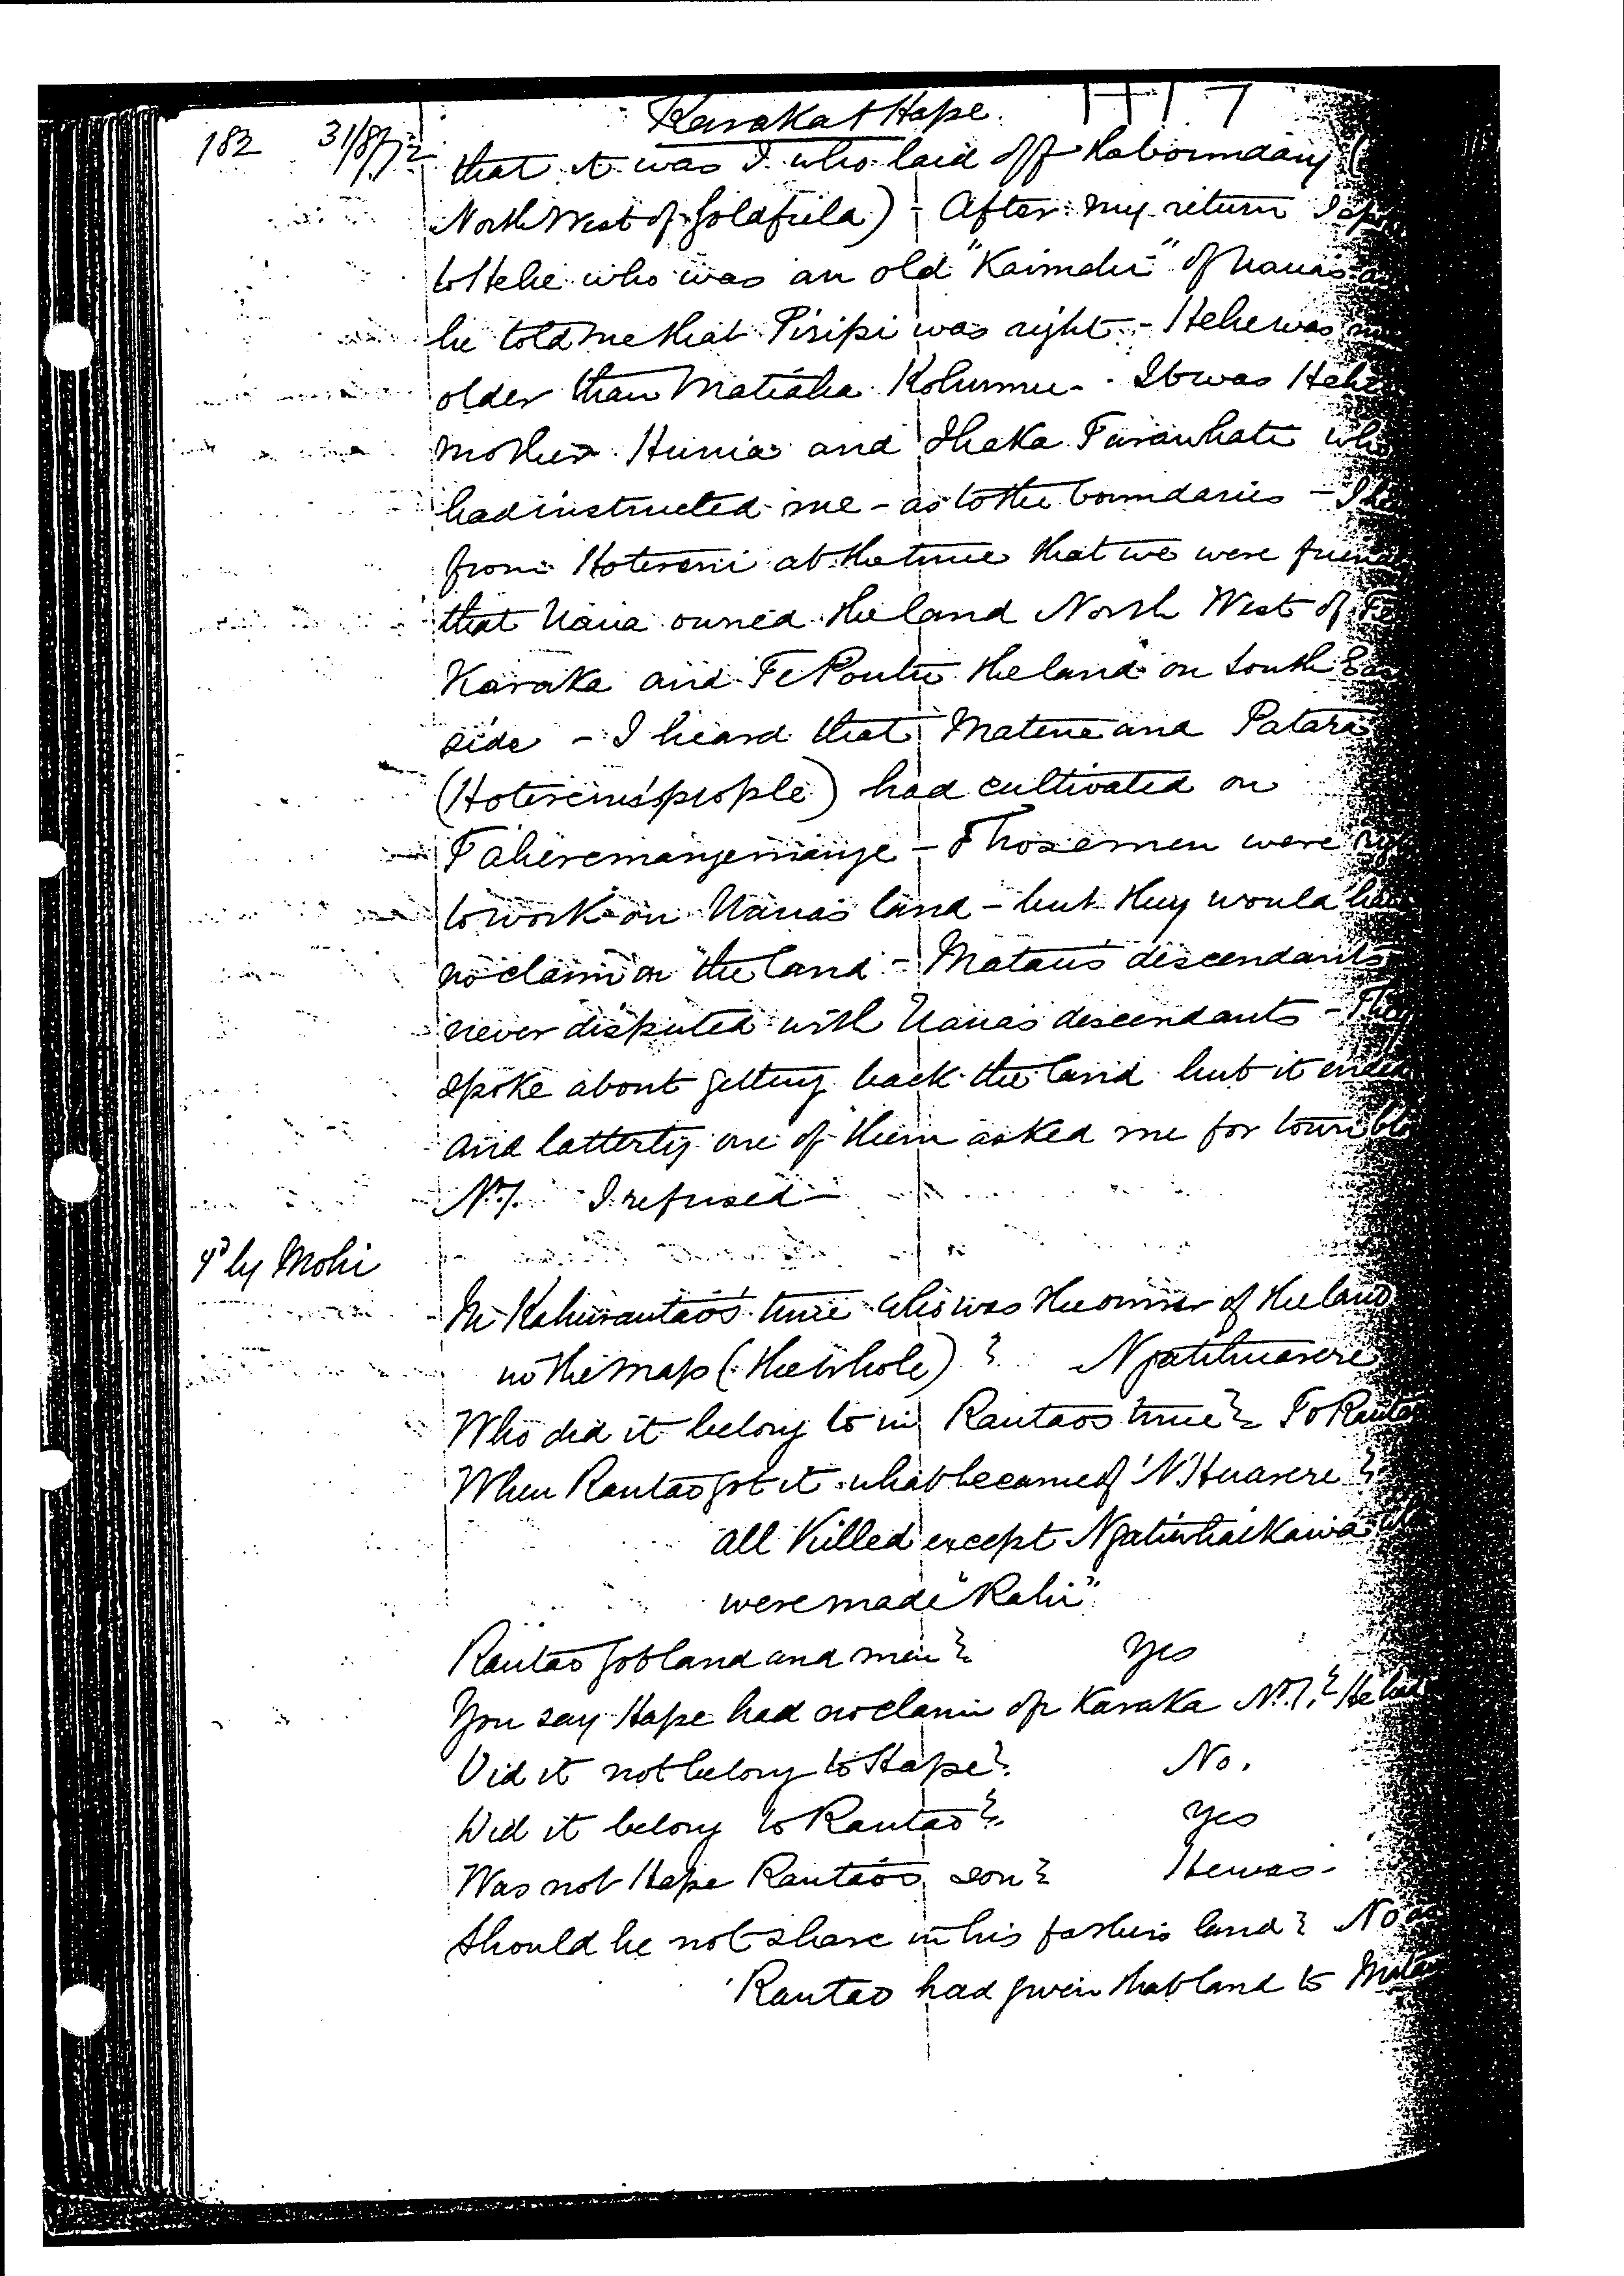 182 31/8/72 Karaka & Hape. H17
that it was I who laid off the boundary (
North West of Goldfield) - After my return I
to Hehe who was an old "Kaimahi" of Uaua's
he told me that Piripi was right - Hehe was
older than Matiaha Kohumu - It was Hehe
mother Hunia and Ihaka Turawhati who
had instructed me - as to the boundaries - I
from Hotereni at the time that we were
that Uaua owned the land North West of Te
Karaka and Te Poutu the land on South
side - I heard that Matene and Patara
(Hotereni's people) had cultivated on
Taheremangemange - Those men were
to work on Uaua's land - but they would
no claim on the land - Matau's descendants
never disputed with Uaua's descendants - They
spoke about getting back the land but it ended
and latterly one of them asked me for
No 1. I refused -
by Mohi
In Kahurautao's time who was the owner of the land
on the map (the whole)? Ngatihuarere
Who did it belong to in Rautao's time? To Rautao
When Rautao got it what became of N'Huarere?
all killed except Ngatiwhaikawa
were made "Rahi"
Rautao got land and men? Yes
You say Hape had no claim of Karaka No 1.? He had
Did it not belong to Hape? No.
Did it belong to Rautao? Yes
Was not Hape Rautao's son? He was -
Should he not share in his father's land? No
Rautao had given that land to